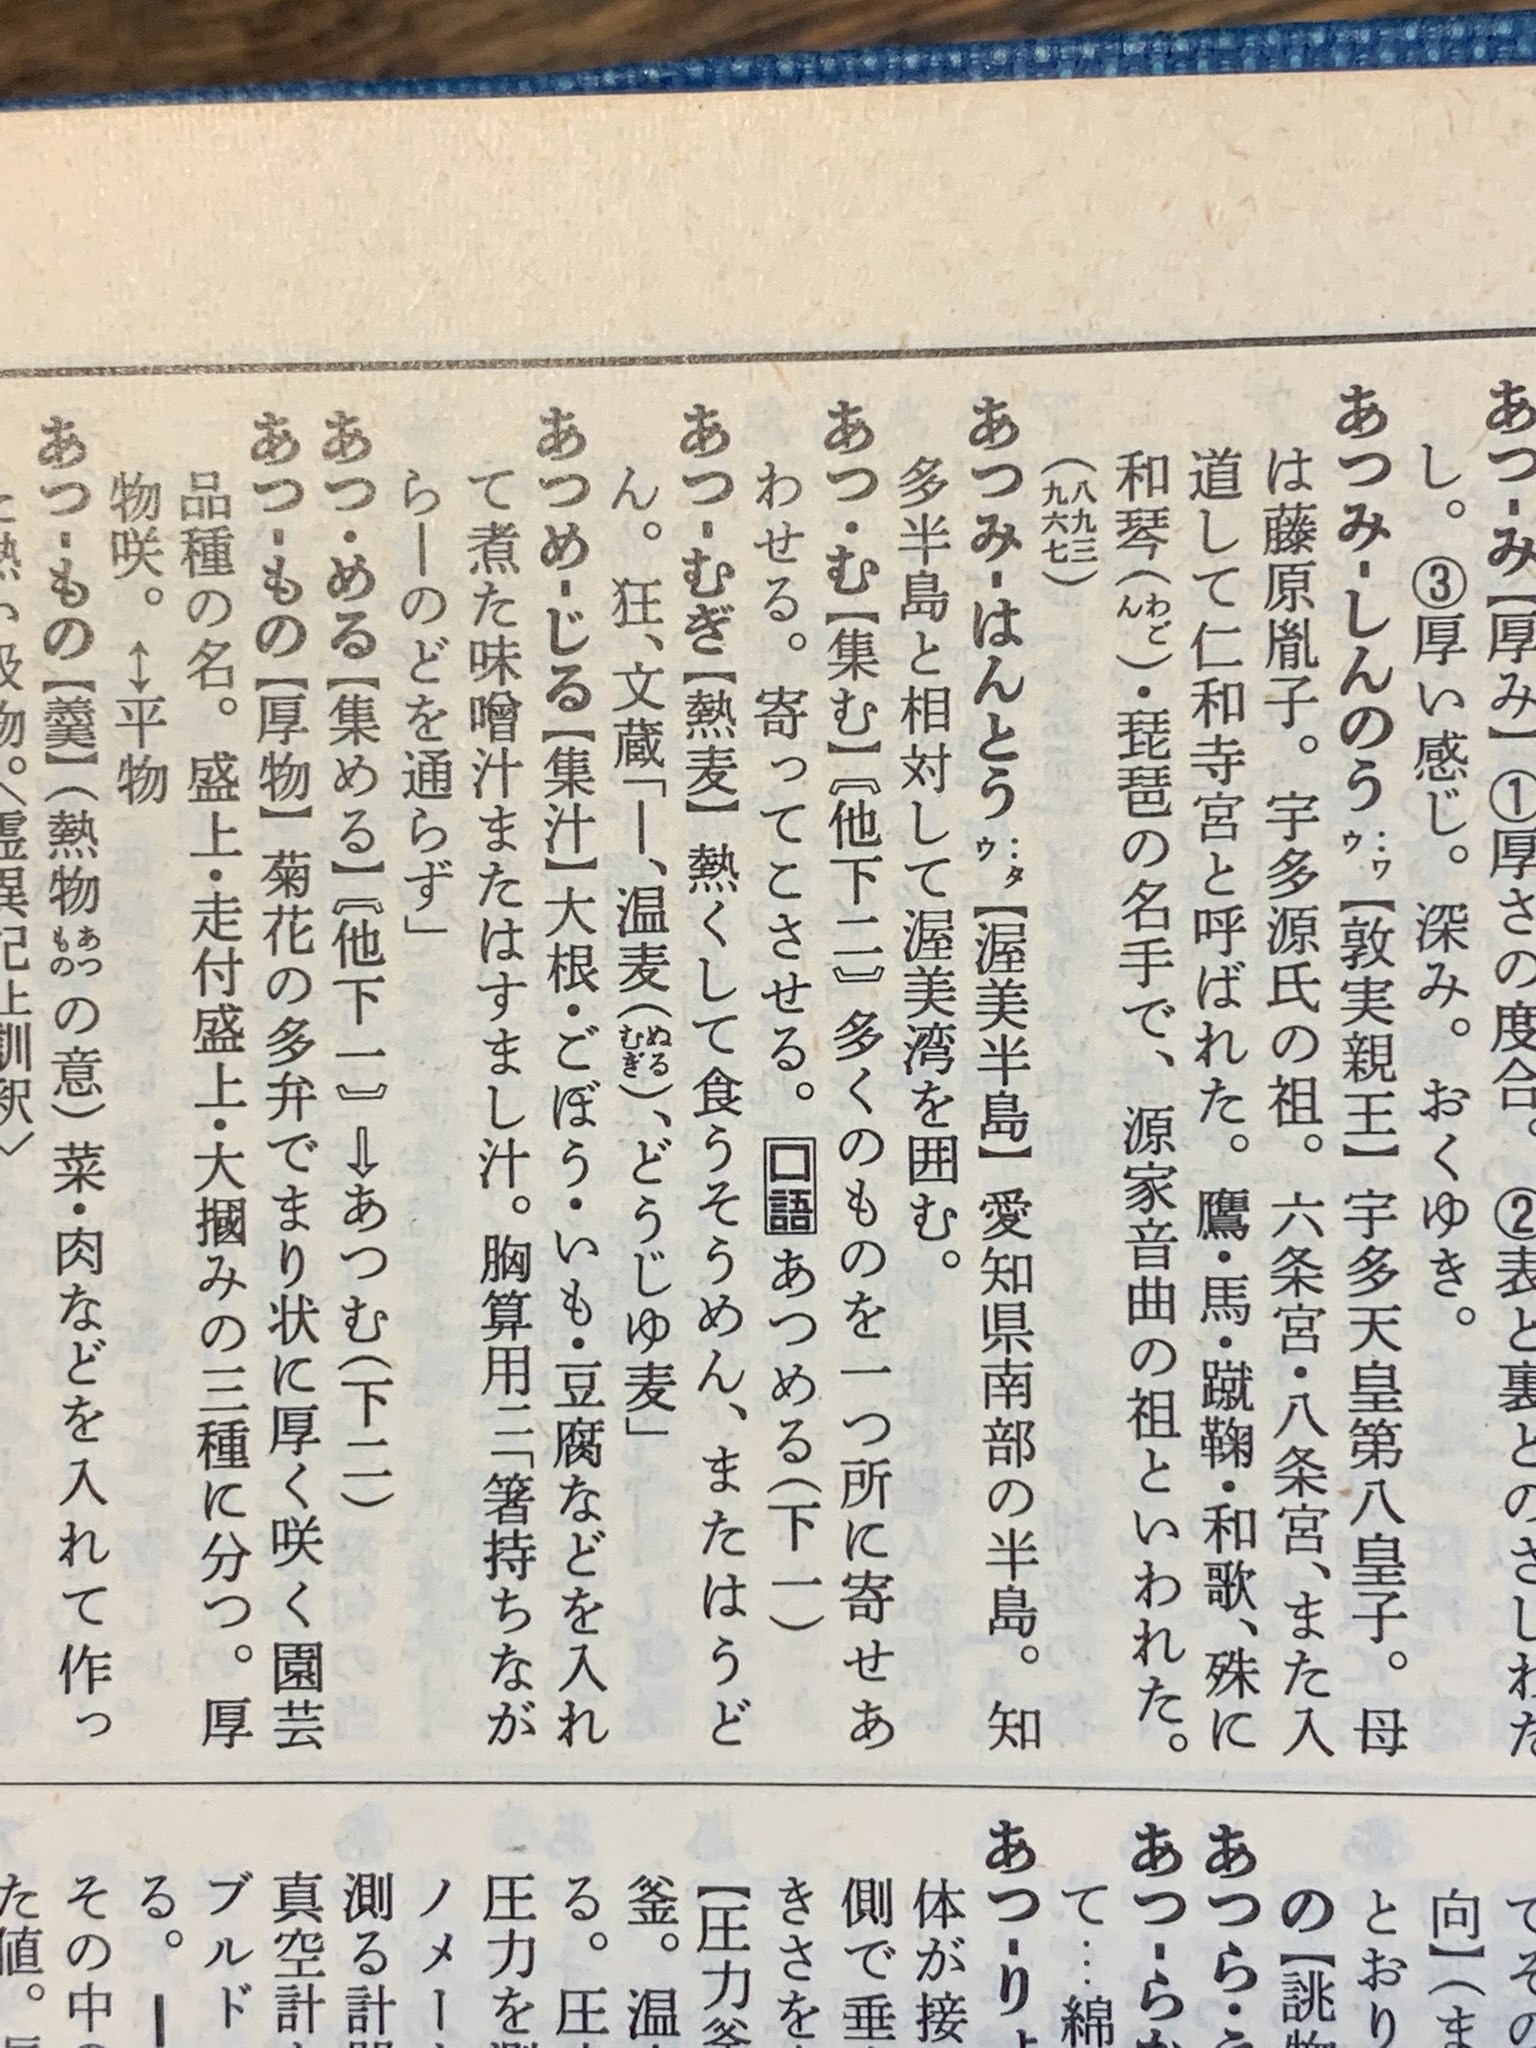 あつ‐み【厚み】①厚さの度合。②表と裏とのさしわた
し。③厚い感じ。深み。おくゆき。
あつみ‐しんのう‥ワウ【敦実親王】宇多天皇第八皇子。母
は藤原胤子。宇多源氏の祖。六条宮・八条宮、また入
道して仁和寺宮と呼ばれた。鷹・馬・蹴鞠・和歌、殊に
和琴(わごん)・琵琶の名手で、源家音曲の祖といわれた。
(八九三九六七)
あつみ‐はんとう‥タウ【渥美半島】愛知県南部の半島。知
多半島と相対して渥美湾を囲む。
あつ・む【集む】『他下二』多くのものを一つ所に寄せあ
わせる。寄ってこさせる。口語あつめる(下一)
あつ‐むぎ【熱麦】熱くして食うそうめん、またはうど
ん。狂、文蔵「―、温麦(ぬるむぎ)、どうじゆ麦」
あつめ‐じる【集汁】大根・ごぼう・いも・豆腐などを入れ
て煮た味噌汁またはすまし汁。胸算用二「箸持ちなが
ら―のどを通らず」
あつ・める【集める】『他下一』⇩あつむ(下二)
あつ‐もの【厚物】菊花の多弁でまり状に厚く咲く園芸
品種の名。盛上・走付盛上・大摑みの三種に分つ。厚
物咲。↔平物
あつ‐もの【羹】(熱物あつものの意)菜・肉などを入れて作っ
た熱い吸物。〈霊異記上訓釈〉
てその
向】(ま
とおり
の【誂物
あつら・
あつ‐らか
て…綿
あつ‐りょ
体が接
側で垂
きさを
【圧力釜
釜。温
る。圧
圧力を
ノメー
測る計
真空計
ブルド
る。―
その中
た値。